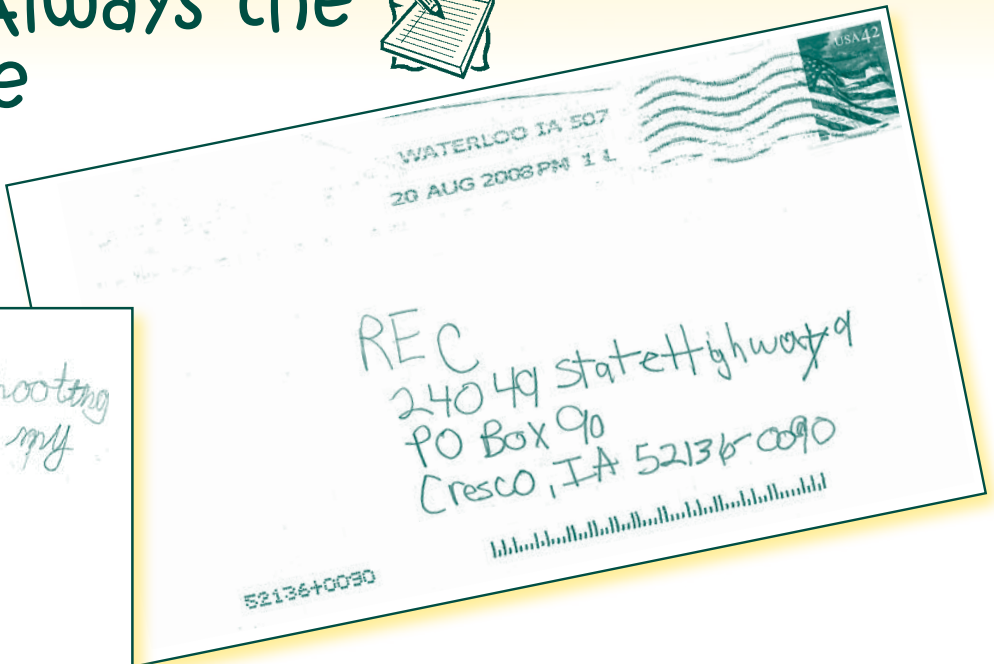 Always the
USA 42
WATERLOO IA 507
20 AUG 2008 PM 1 L
REC
24049 State Highway 9
PO Box 90
Cresco, IA 52136-0090
my
52136+0090